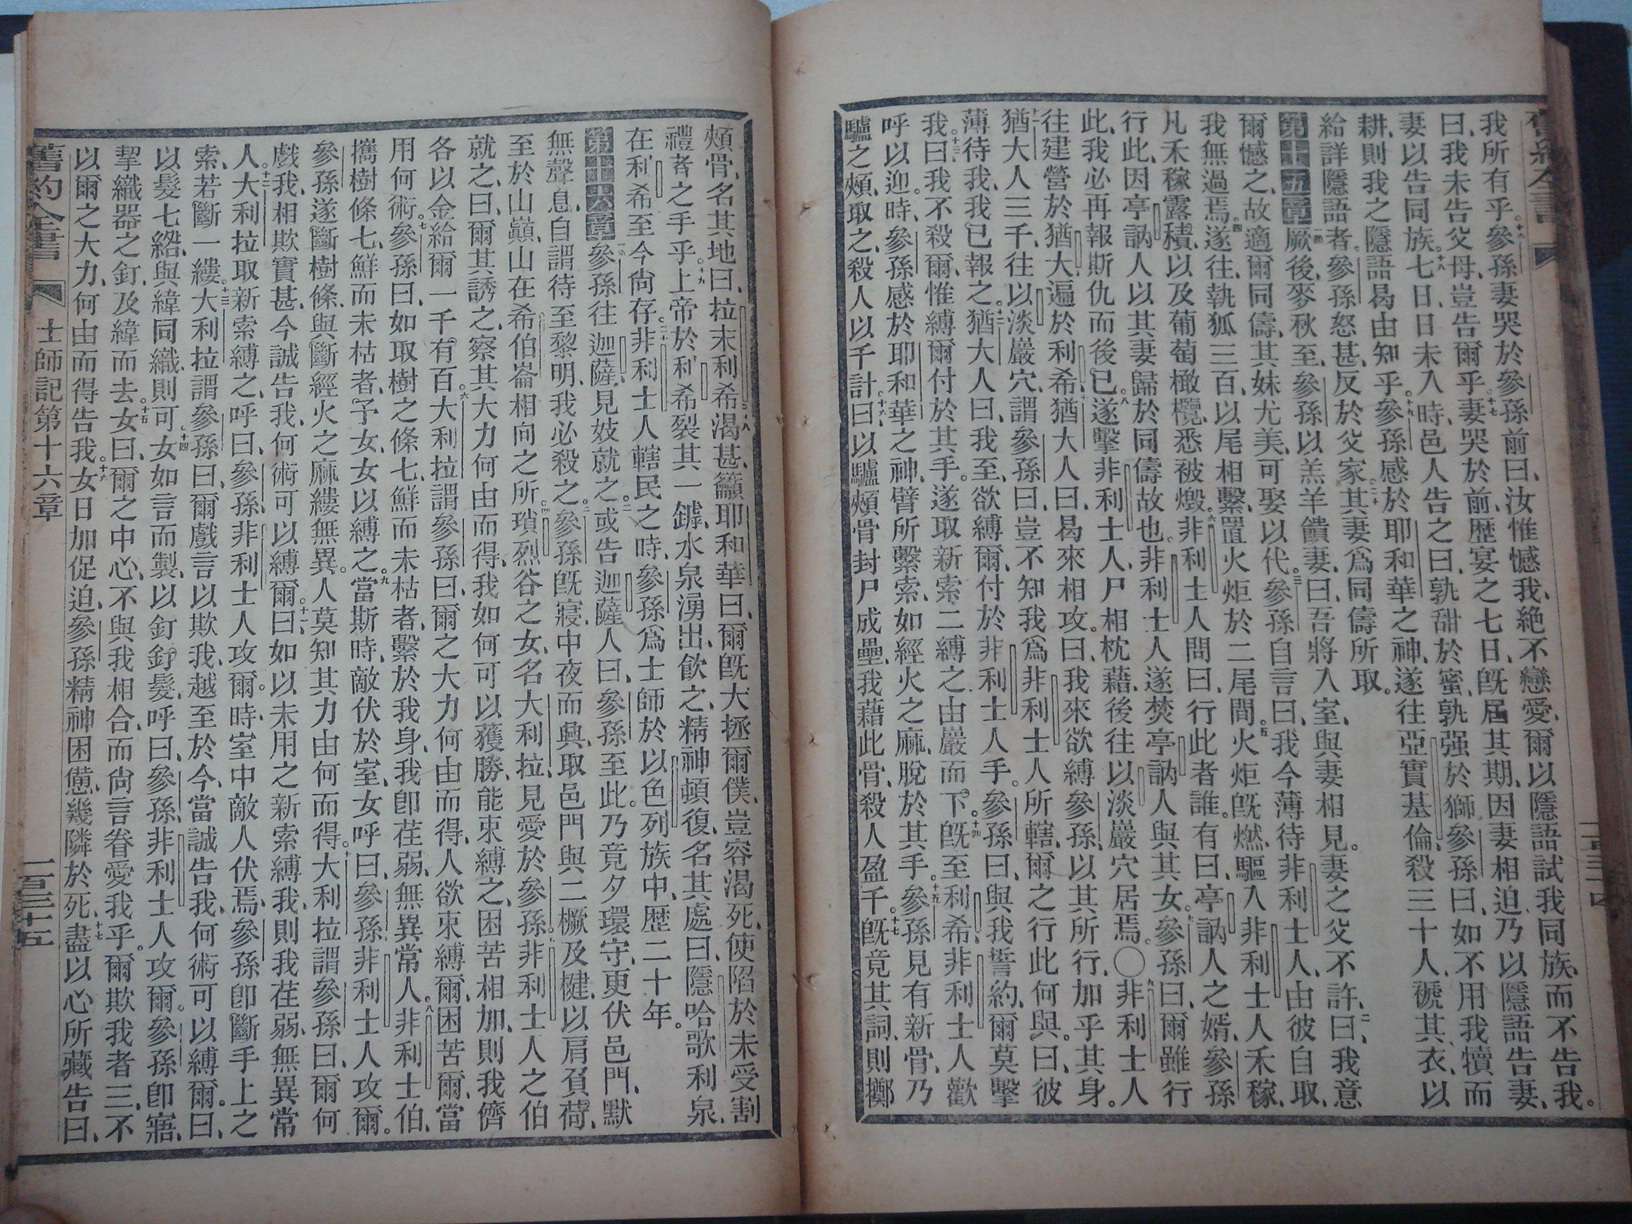 舊約全書
一百三十四
我所有乎、十六參孫妻哭於參孫前曰、汝惟憾我、絕不戀愛、爾以隱語試我同族、而不告我。
曰、我未告父母、豈告爾乎、十七妻哭於前、歷宴之七日、旣屆其期、因妻相迫、乃以隱語告妻、
妻以告同族。十八七日、日未入時、邑人告之曰、孰甜於蜜、孰强於獅、參孫曰、如不用我犢而
耕、則我之隱語曷由知乎、十九參孫感於耶和華之神、遂往亞實基倫、殺三十人、褫其衣、以
給詳隱語者、參孫怒甚、反於父家、二十其妻爲同儔所取、
第十五章一厥後麥秋至、參孫以羔羊饋妻、曰、吾將入室、與妻相見、妻之父不許、二曰、我意
爾憾之、故適爾同儔、其妹尤美、可娶以代。三參孫自言曰、我今薄待非利士人、由彼自取、
我無過焉、四遂往執狐三百、以尾相繫、置火炬於二尾間、五火炬旣燃、驅入非利士人禾稼、
凡禾稼露積、以及葡萄橄欖、悉被燬、六非利士人問曰、行此者誰、有曰、亭訥人之婿、參孫
行此、因亭訥人以其妻歸於同儔故也、非利士人遂焚亭訥人與其女、七參孫曰、爾雖行
此、我必再報斯仇而後已、八遂擊非利士人、尸相枕藉、後往以淡巖穴居焉。〇九非利士人
往建營於猶大、遍於利希、十猶大人曰、曷來相攻、曰、我來欲縛參孫、以其所行、加乎其身。
十一猶大人三千、往以淡巖穴、謂參孫曰、豈不知我爲非利士人所轄、爾之行此何與、曰、彼
薄待我、我已報之、十二猶大人曰、我至欲縛爾、付於非利士人手。參孫曰、與我誓約、爾莫擊
我、十三曰、我不殺爾、惟縛爾付於其手。遂取新索二、縛之、由巖而下、十四旣至利希、非利士人歡
呼以迎、時、參孫感於耶和華之神、臂所繫索、如經火之麻、脫於其手。十五參孫見有新骨、乃
驢之頰、取之、殺人以千計、十六曰、以驢頰骨、封尸成壘、我藉此骨、殺人盈千、十七旣竟其詞、則擲
頰骨、名其地曰、拉末利希、十八渴甚、籲耶和華曰、爾旣大拯爾僕、豈容渴死、使陷於未受割
禮者之手乎、十九上帝於利希裂其一罅、水泉湧出、飮之、精神頓復、名其處曰、隱哈歌利泉、
在利希、至今尙存、二十非利士人轄民之時、參孫爲士師於以色列族中、歷二十年。
第十六章一參孫往迦薩、見妓就之。二或告迦薩人曰、參孫至此、乃竟夕環守、更伏邑門、默
無聲息、自謂待至黎明、我必殺之、三參孫旣寢、中夜而興、取邑門與二橛及楗、以肩負荷、
至於山巔、山在希伯崙相向之所、四瑣烈谷之女、名大利拉、見愛於參孫、五非利士人之伯
就之、曰、爾其誘之、察其大力何由而得、我如何可以獲勝、能束縛之、困苦相加、則我儕
各以金給爾、一千有百、六大利拉謂參孫曰、爾之大力何由而得、人欲束縛爾、困苦爾、當
用何術、七參孫曰、如取樹之條七、鮮而未枯者、繫於我身、我卽荏弱、無異常人、八非利士伯、
攜樹條七、鮮而未枯者、予女、女以縛之、九當斯時、敵伏於室、女呼曰、參孫、非利士人攻爾。
參孫遂斷樹條、與斷經火之麻縷無異。人莫知其力由何而得。十大利拉謂參孫曰、爾何
戲我、相欺實甚、今誠告我、何術可以縛爾、十一曰、如以未用之新索縛我、則我荏弱無異常
人、十二大利拉取新索縛之、呼曰、參孫、非利士人攻爾。時、室中敵人伏焉、參孫卽斷手上之
索、若斷一縷、十三大利拉謂參孫曰、爾戲言以欺我、越至於今、當誠告我、何術可以縛爾。曰、
以髮七綹、與緯同織則可、十四女如言而製、以釘釪髮、呼曰、參孫、非利士人攻爾。參孫卽寤、
挈織器之釘及緯而去、十五女曰、爾之中心、不與我相合、而尙言眷愛我乎、爾欺我者三、不
以爾之大力何由而得告我、十六女日加促迫、參孫精神困憊、幾隣於死、十七盡以心所藏告曰、
舊約全書
士師記第十六章
一百三十五